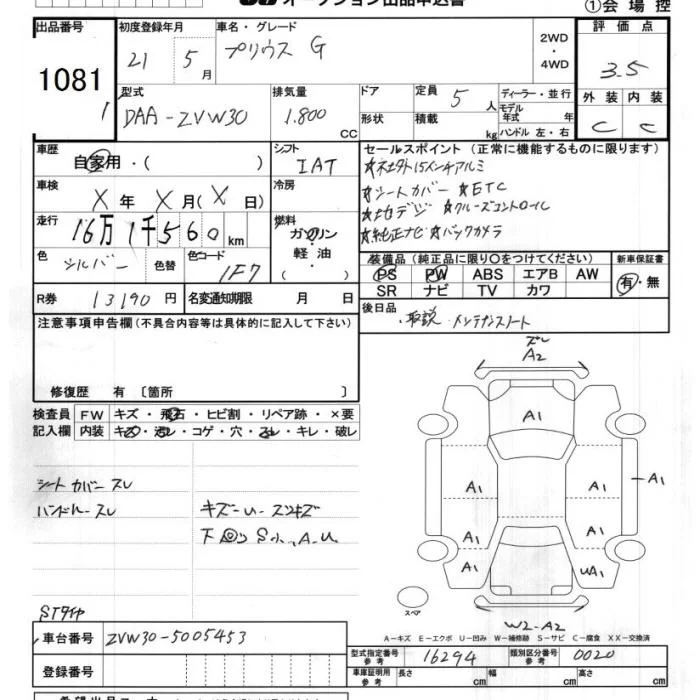 オークション出品申込書
①会場控
出品番号
1081
1
初度登録年月
21 5月
車名・グレード
プリウス G
2WD
・
4WD
評価点
3.5
外装 内装
C C
型式
DAA-ZVW30
排気量
1.800
CC
ドア
形状
定員 5人
積載 kg
ディーラー・並行
モデル年式 年
ハンドル 左・右
車歴
自家用・( )
シフト
IAT
セールスポイント (正常に機能するものに限ります)
☆社外15インチアルミ
☆シートカバー ☆ETC
☆地デジ ☆クルーズコントロール
☆純正ナビ ☆バックカメラ
車検
X年 X月(X日)
冷房
走行
16万1千560km
燃料
ガソリン
軽油
( )
色
シルバー
色替
色コード
1F7
装備品 (純正品に限り○をつけてください)
PS PW ABS エアB AW
SR ナビ TV カワ
新車保証書
有・無
R券 13190円
名変通知期限 月 日
後日品
・取説・メンテナンスノート
注意事項申告欄(不具合内容等は具体的に記入して下さい)
修復歴 有 〔箇所 〕
検査員
記入欄
FW キズ・飛石・ヒビ割・リペア跡・×要
内装 キズ・汚レ・コゲ・穴・スレ・キレ・破レ
シートカバースレ
ハンドルスレ
キズ-U-スリキズ
下回りSh,A,U
ズレ
A2
A1
A1 A1
A1
A1 A1
A1 UA1
スペア
W2-A2
A-キズ E-エクボ U-凹み W-補修跡 S-サビ C-腐食 XX-交換済
STタイヤ
車台番号 ZVW30-5005453
登録番号
型式指定番号
参考
16294
類別区分番号
参考
0020
車庫証明用
参考
長さ cm 幅 cm 高さ cm